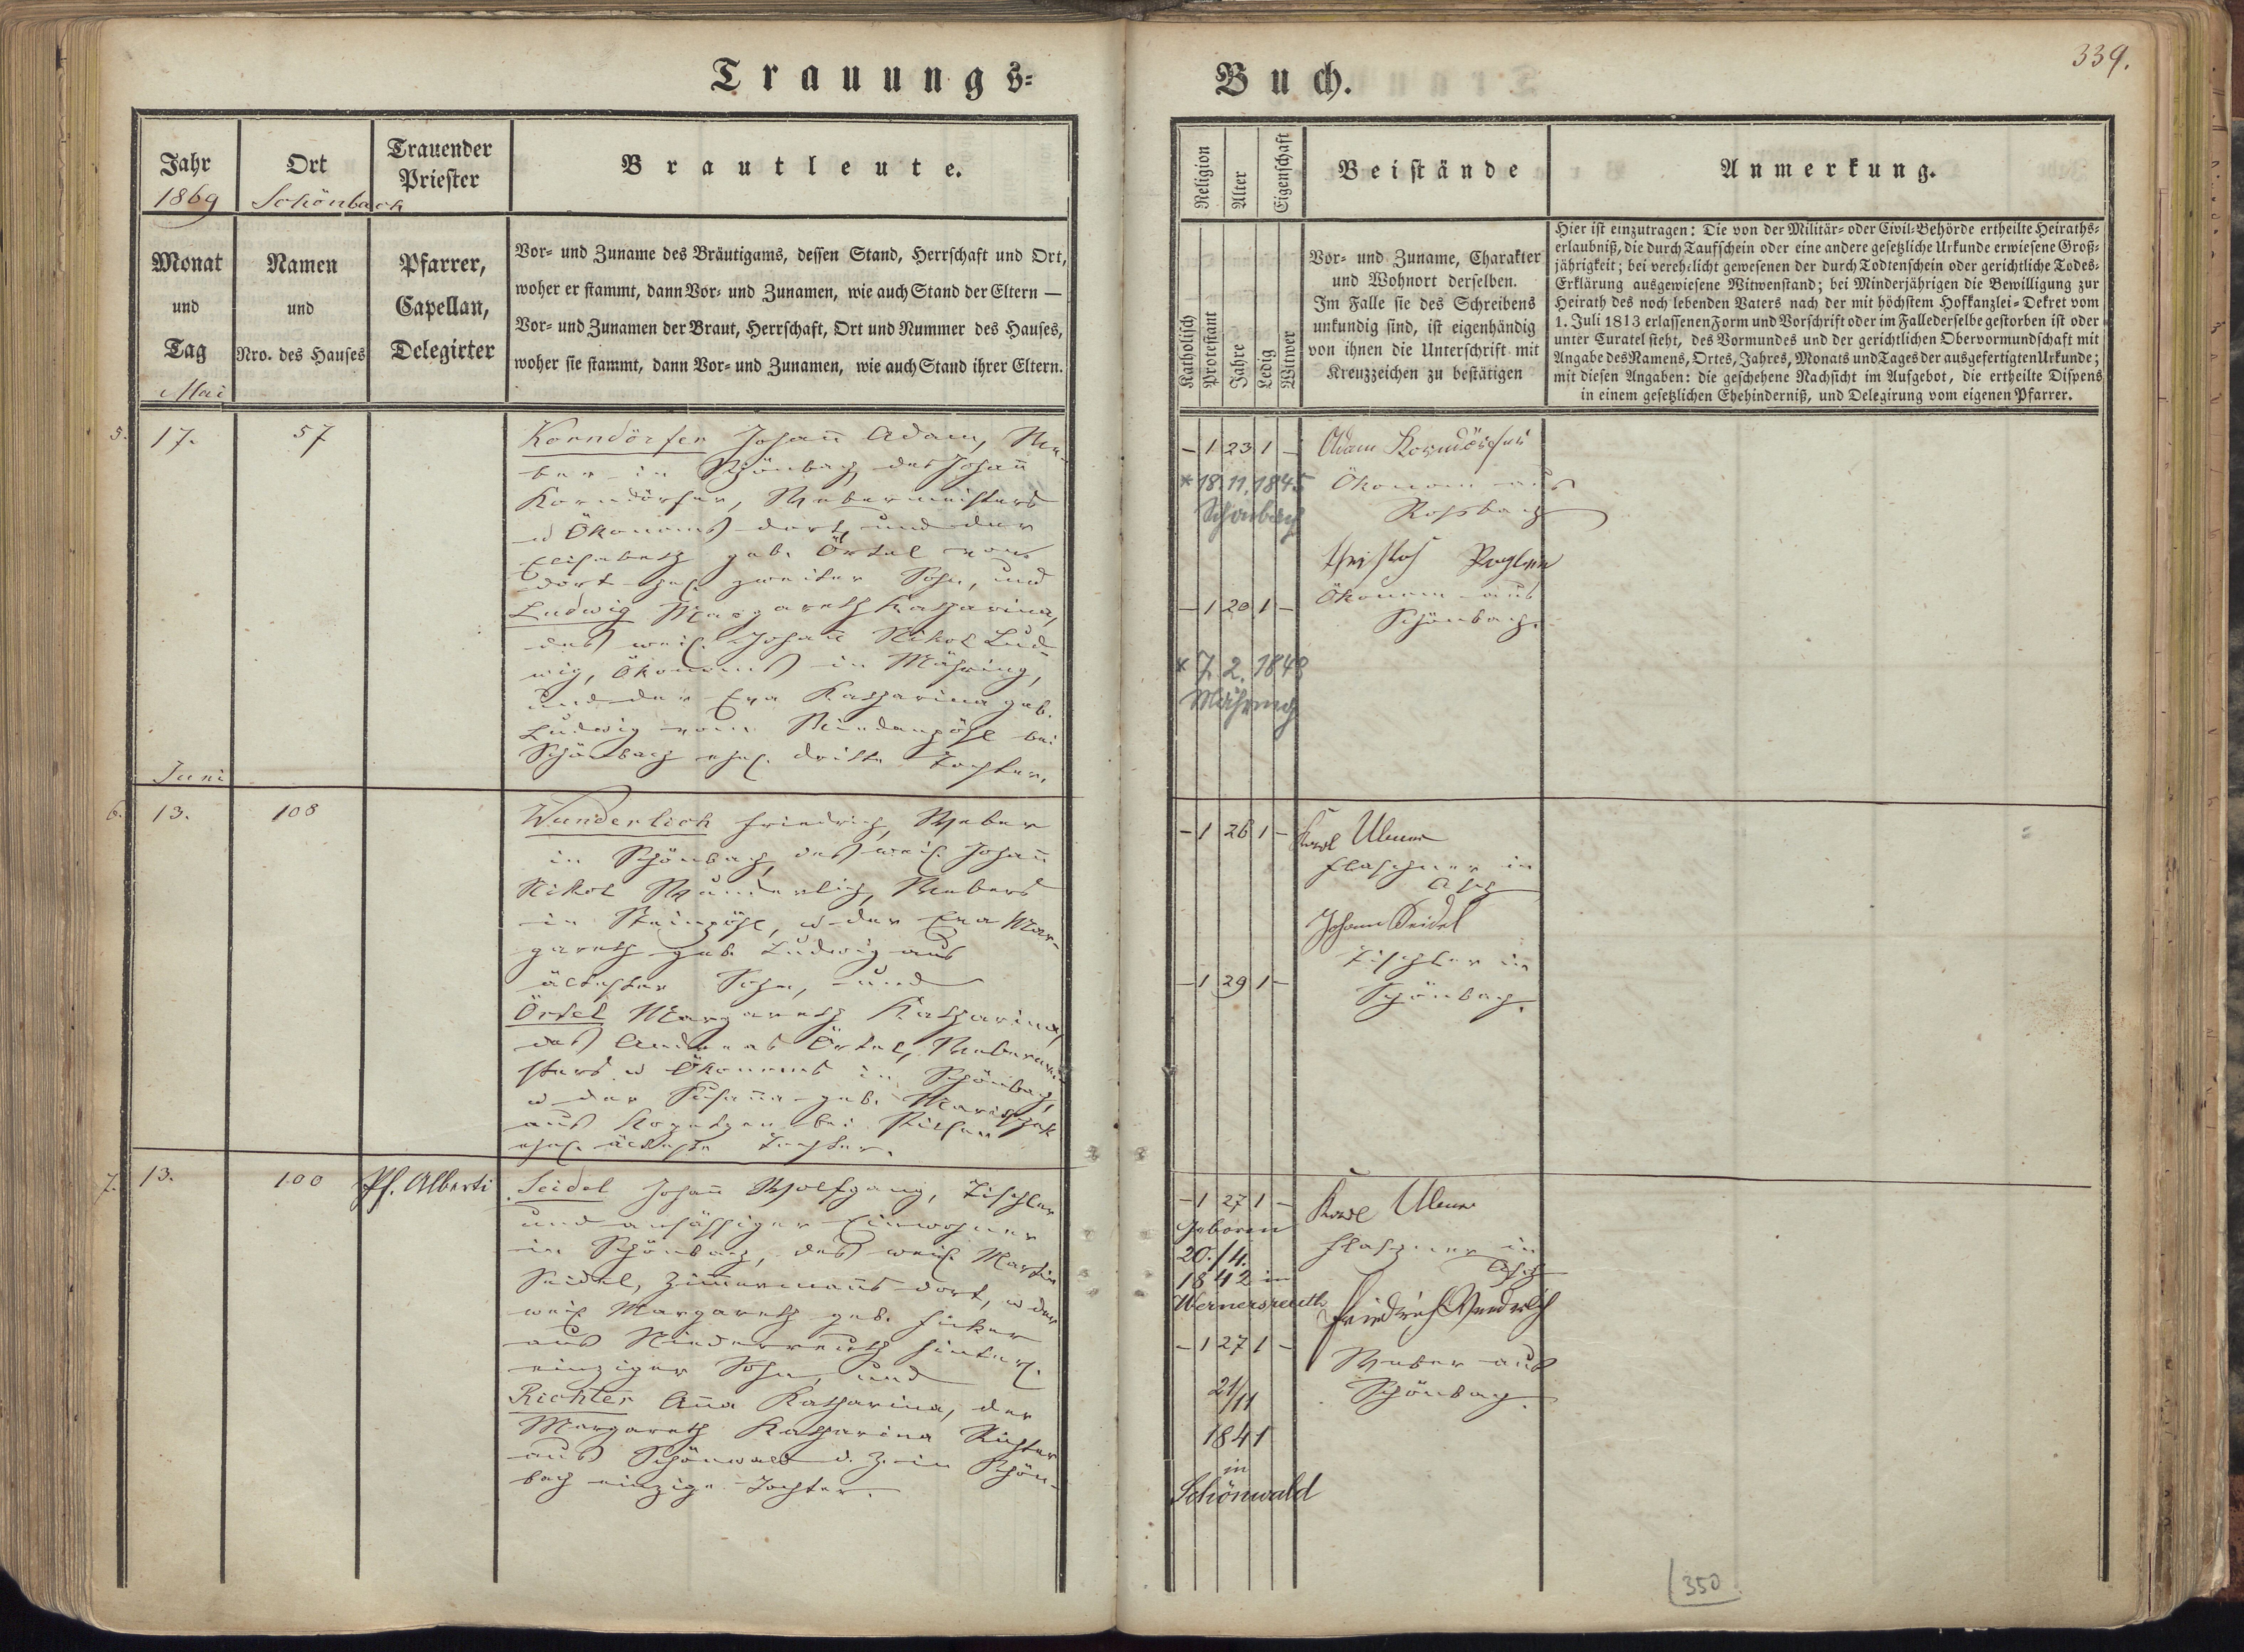 Trauungs-
Jahr
1869
Ort
Schönbach
Trauender
Priester
Brautleute.
Monat
und
Tag
Mai
Namen
und
Nro. des Hauses
Pfarrer,
Capellan,
Delegirter
Vor- und Zuname des Bräutigams, dessen Stand, Herrschaft und Ort,
woher er stammt, dann Vor- und Zunamen, wie auch Stand der Eltern —
Vor- und Zunamen der Braut, Herrschaft, Ort und Nummer des Hauses,
woher sie stammt, dann Vor- und Zunamen, wie auch Stand ihrer Eltern.
5. 17. 57
Korndörfer Johan̄ Adam, We-
ber in Schönbach, des Johan̄
Korndörfer, Webermeisters
u Ökonoms dort, und der
Elisabeth geb. Örtel von
dort ehel. zweiter Sohn, und
Ludwig Margareth Katharina,
des weil. Johan̄ Nikol Lud-
wig, Ökonoms in Mähring,
und der Eva Katharina geb.
Ludwig vom bei
Schönbach ehel. dritte Tochter.
Juni
6. 13. 108
Wunderlich Friedrich, Weber
in Schönbach, des weil. Johan̄
Nikol Wunderlich, Webers
in Steinpöhl, u der Eva Mar-
gareth geb. Ludwig aus
ältester Sohn, und
Örtel Margareth Katharina,
des Andreas Örtel, Webermei-
sters u Ökonoms in Schönbach,
u der Susan̄a geb.
aus bei Pilsen
ehel. älteste Tochter.
7. 13. 100 Pf. Alberti
Seidel Johan̄ Wolfgang, Tischler
und ansäßiger Einwohner
in Schönbach, des weil. Martin
Seidel, Zim̄erman̄s dort, u der
weil. Margareth geb.
aus Niederreuth hinterl.
einziger Sohn, und
Richter An̄a Katharina, der
Margareth Katharina Richter
aus Schönwald d. Z. in Schön-
bach einzige Tochter.
Buch.
339.
Religion
Alter
Eigenschaft
Beistände
Anmerkung.
Katholisch
Protestant
Jahre
Ledig
Witwer
Vor- und Zuname, Charakter
und Wohnort derselben.
Im Falle sie des Schreibens
unkundig sind, ist eigenhändig
von ihnen die Unterschrift mit
Kreuzzeichen zu bestätigen
Hier ist einzutragen: Die von der Militär- oder Civil-Behörde ertheilte Heiraths-
erlaubniß, die durch Taufschein oder eine andere gesetzliche Urkunde erwiesene Groß-
jährigkeit; bei verehelicht gewesenen der durch Todtenschein oder gerichtliche Todes-
Erklärung ausgewiesene Witwenstand; bei Minderjährigen die Bewilligung zur
Heirath des noch lebenden Vaters nach der mit höchstem Hofkanzlei-Dekret vom
1. Juli 1813 erlassenen Form und Vorschrift oder im Falle derselbe gestorben ist oder
unter Curatel steht, des Vormundes und der gerichtlichen Obervormundschaft mit
Angabe des Namens, Ortes, Jahres, Monats und Tages der ausgefertigten Urkunde;
mit diesen Angaben: die geschehene Nachsicht im Aufgebot, die ertheilte Dispens
in einem gesetzlichen Ehehinderniß, und Delegirung vom eigenen Pfarrer.
– 1 23 1 –
* 18.11.1845
Schönbach
Adam Korndörfer
Ökonom aus
Roßbach
Christof
Ökonom aus
Schönbach.
– 1 20 1 –
* 7. 2. 1848
Mähring
– 1 26 1 –
Karl Ulmer
Flaschner in
Asch
Johann Seidel
Tischler in
Schönbach.
– 1 29 1 –
– 1 27 1 –
Geboren
20./4.
1842 in
Wernersreuth
Karl Ulmer
Flaschner in
Asch
Friedrich Wunderlich
Weber aus
Schönbach.
– 1 27 1 –
21/11
1841
in
Schönwald
350